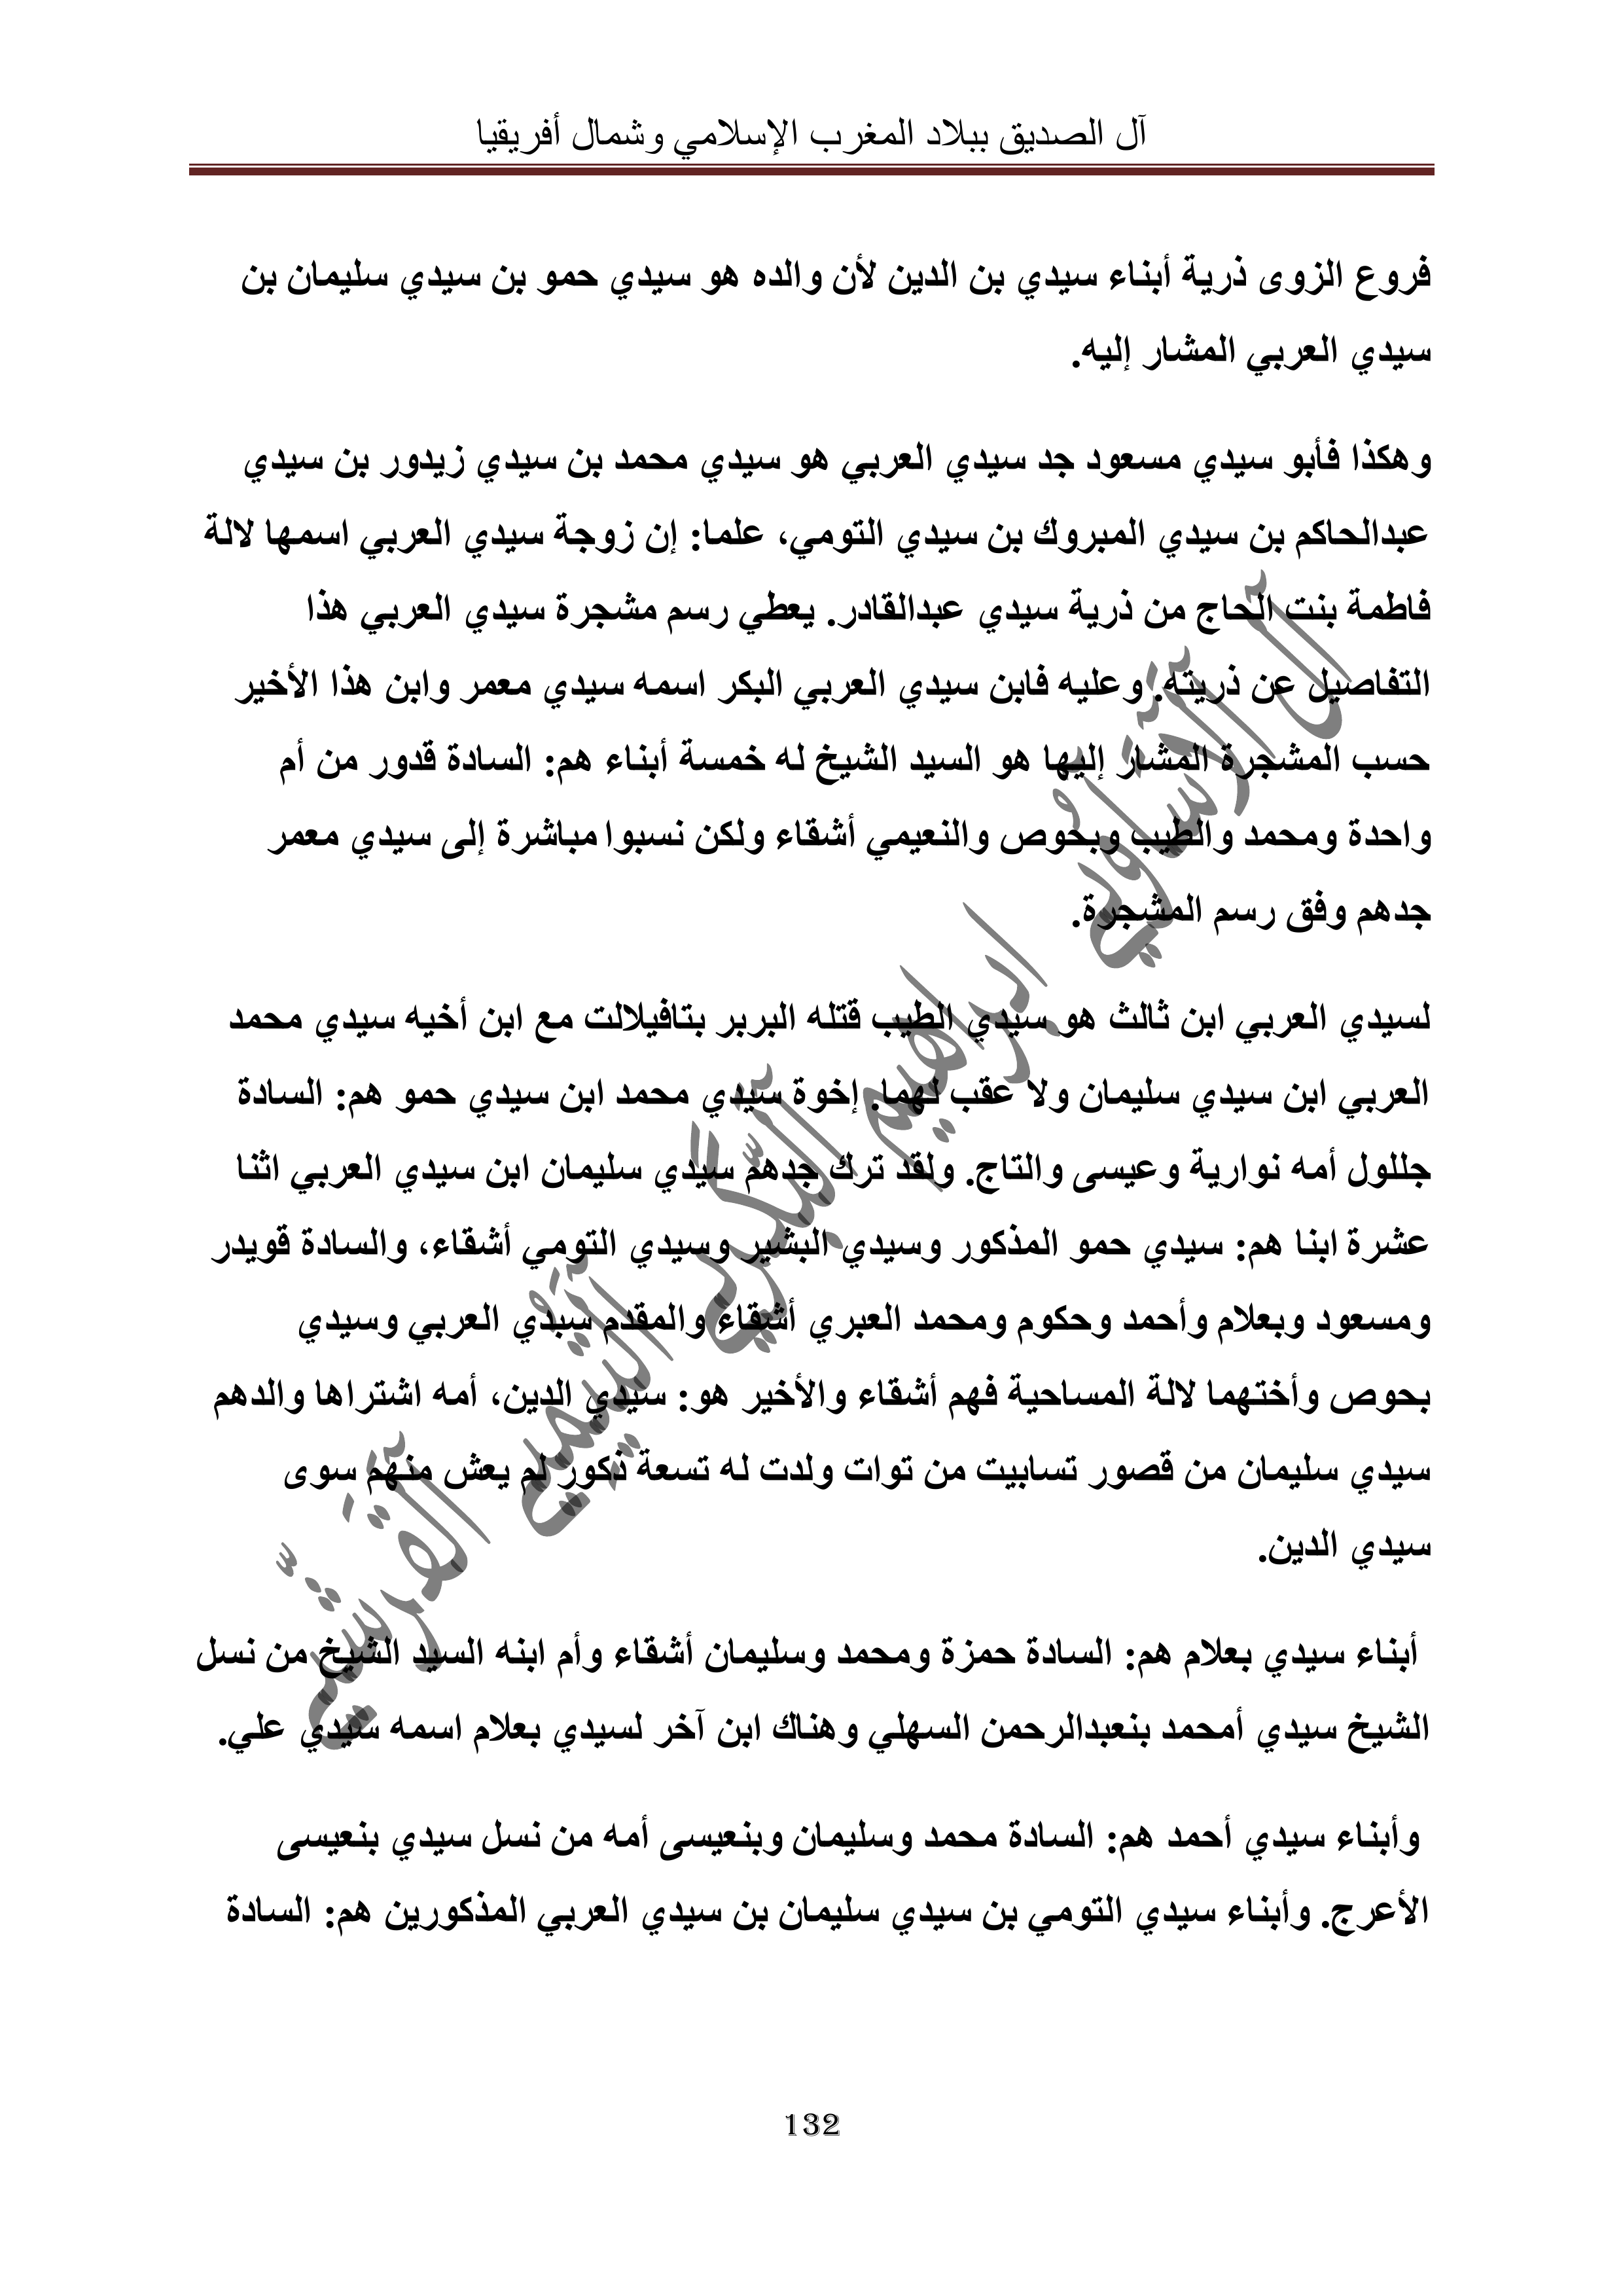 آل الصديق ببلاد المغرب الإسلامي وشمال أفريقيا
فروع الزوى ذرية أبناء سيدي بن الدين لأن والده هو سيدي حمو بن سيدي سليمان بن
سيدي العربي المشار إليه.
وهكذا فأبو سيدي مسعود جد سيدي العربي هو سيدي محمد بن سيدي زيدور بن سيدي
عبدالحاكم بن سيدي المبروك بن سيدي التومي، علما: إن زوجة سيدي العربي اسمها لالة
فاطمة بنت الحاج من ذرية سيدي عبدالقادر. يعطي رسم مشجرة سيدي العربي هذا
التفاصيل عن ذريته. وعليه فابن سيدي العربي البكر اسمه سيدي معمر وابن هذا الأخير
حسب المشجرة المشار إليها هو السيد الشيخ له خمسة أبناء هم: السادة قدور من أم
واحدة ومحمد والطيب وبحوص والنعيمي أشقاء ولكن نسبوا مباشرة إلى سيدي معمر
جدهم وفق رسم المشجرة.
لسيدي العربي ابن ثالث هو سيدي الطيب قتله البربر بتافيلالت مع ابن أخيه سيدي محمد
العربي ابن سيدي سليمان ولا عقب لهما. إخوة سيدي محمد ابن سيدي حمو هم: السادة
جللول أمه نوارية وعيسى والتاج. ولقد ترك جدهم سيدي سليمان ابن سيدي العربي اثنا
عشرة ابنا هم: سيدي حمو المذكور وسيدي البشير وسيدي التومي أشقاء، والسادة قويدر
ومسعود وبعلام وأحمد وحكوم ومحمد العبري أشقاء والمقدم سبدي العربي وسيدي
بحوص وأختهما لالة المساحية فهم أشقاء والأخير هو: سيدي الدين، أمه اشتراها والدهم
سيدي سليمان من قصور تسابيت من توات ولدت له تسعة ذكور لم يعش منهم سوى
سيدي الدين.
أبناء سيدي بعلام هم: السادة حمزة ومحمد وسليمان أشقاء وأم ابنه السيد الشيخ من نسل
الشيخ سيدي أمحمد بنعبدالرحمن السهلي وهناك ابن آخر لسيدي بعلام اسمه سيدي علي.
وأبناء سيدي أحمد هم: السادة محمد وسليمان وبنعيسى أمه من نسل سيدي بنعيسى
الأعرج. وأبناء سيدي التومي بن سيدي سليمان بن سيدي العربي المذكورين هم: السادة
132